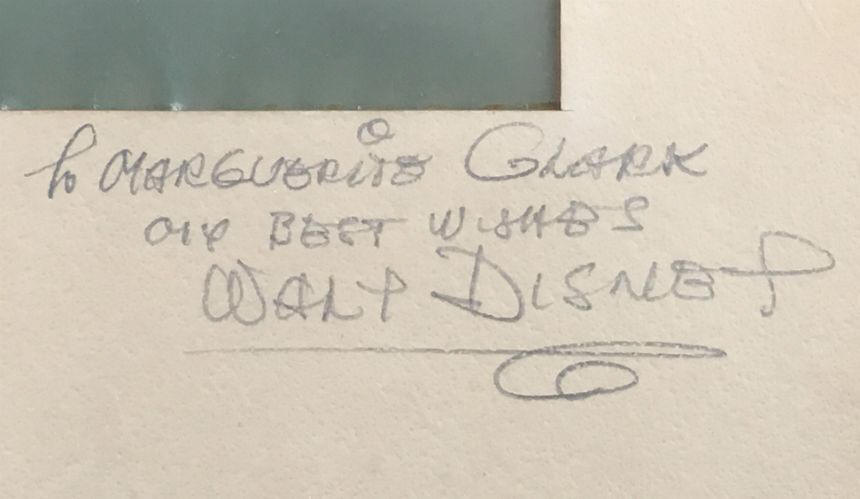 To MARGUERITE CLARK
MY BEST WISHES
WALT DISNEY